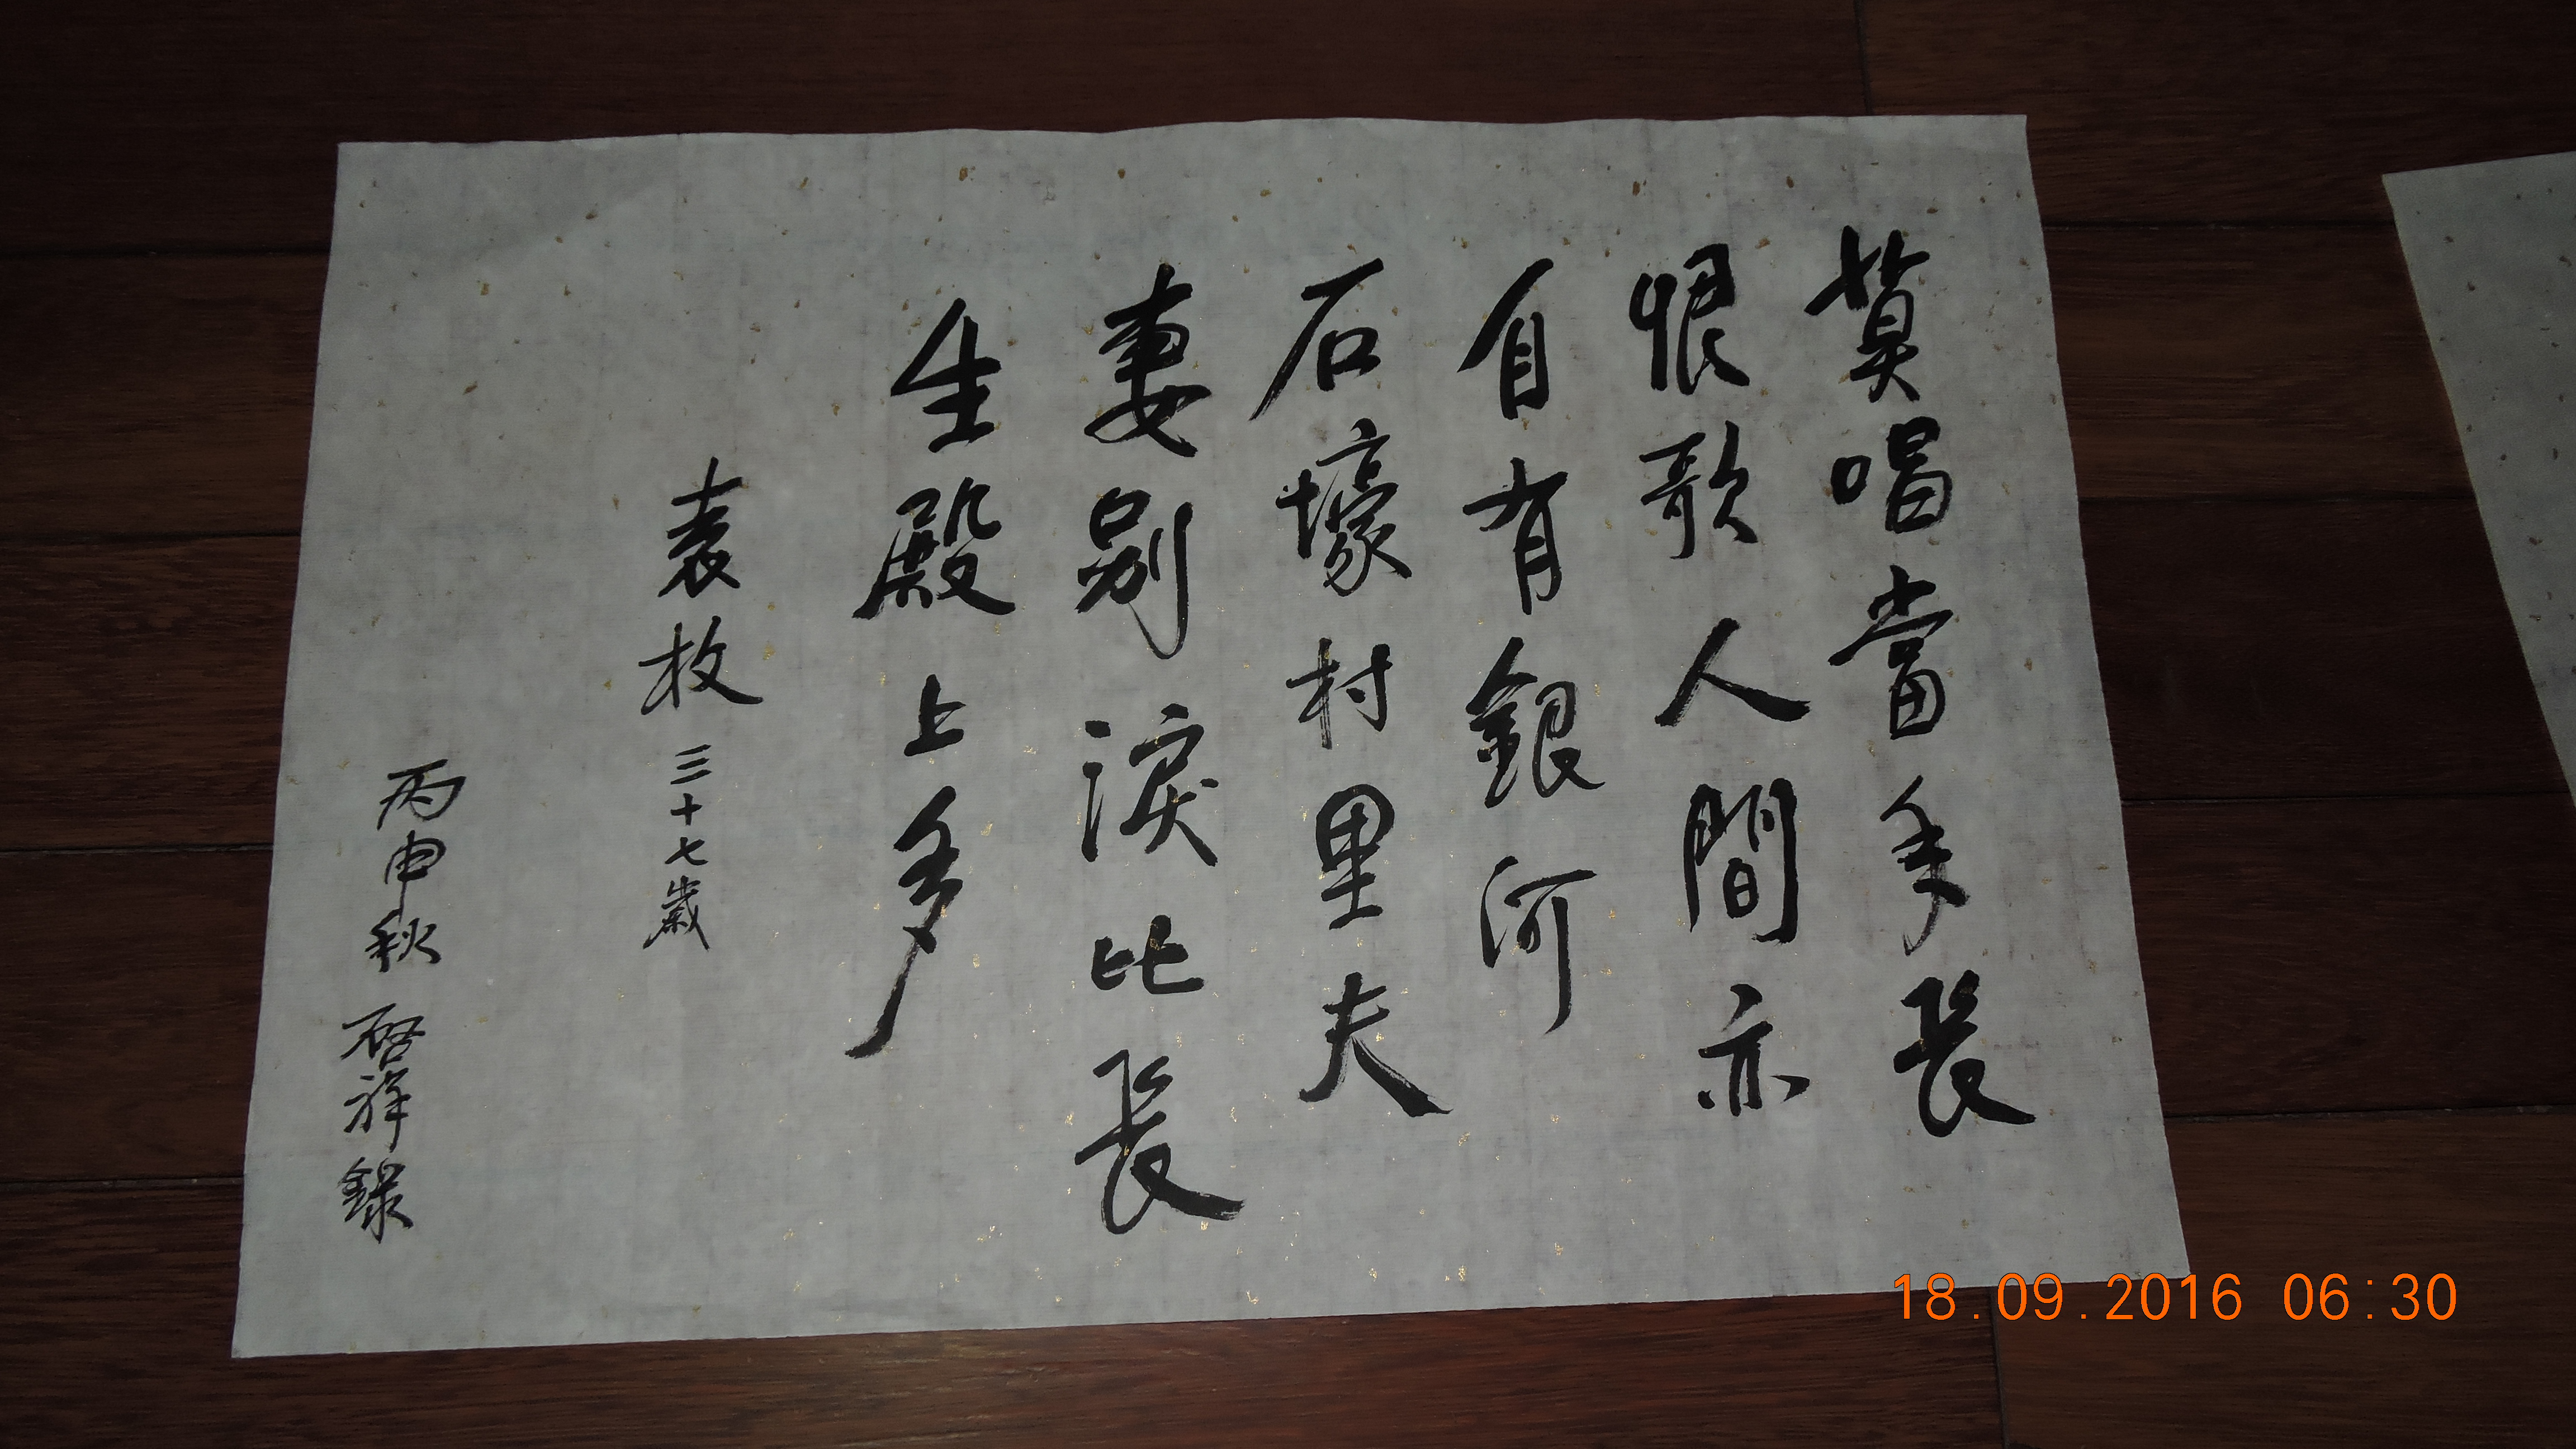 莫唱當年長
恨歌人間亦
自有銀河
石壕村里夫
妻别淚比長
生殿上多
袁枚 三十七歲
丙申秋 啓祥錄
18.09.2016 06:30